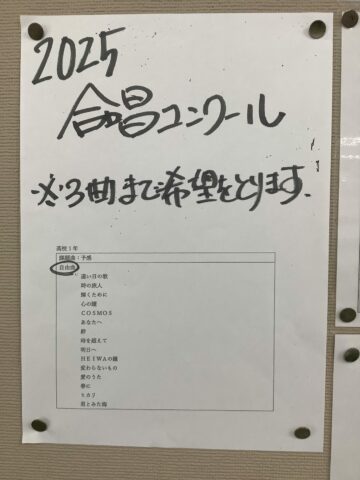 2025
合唱コンクール
※3曲まで希望をとります.
高校1年
課題曲：予感
自由曲
遠い日の歌
時の旅人
輝くために
心の瞳
COSMOS
あなたへ
絆
時を超えて
明日へ
HEIWAの鐘
変わらないもの
愛のうた
春に
ヒカリ
君とみた海